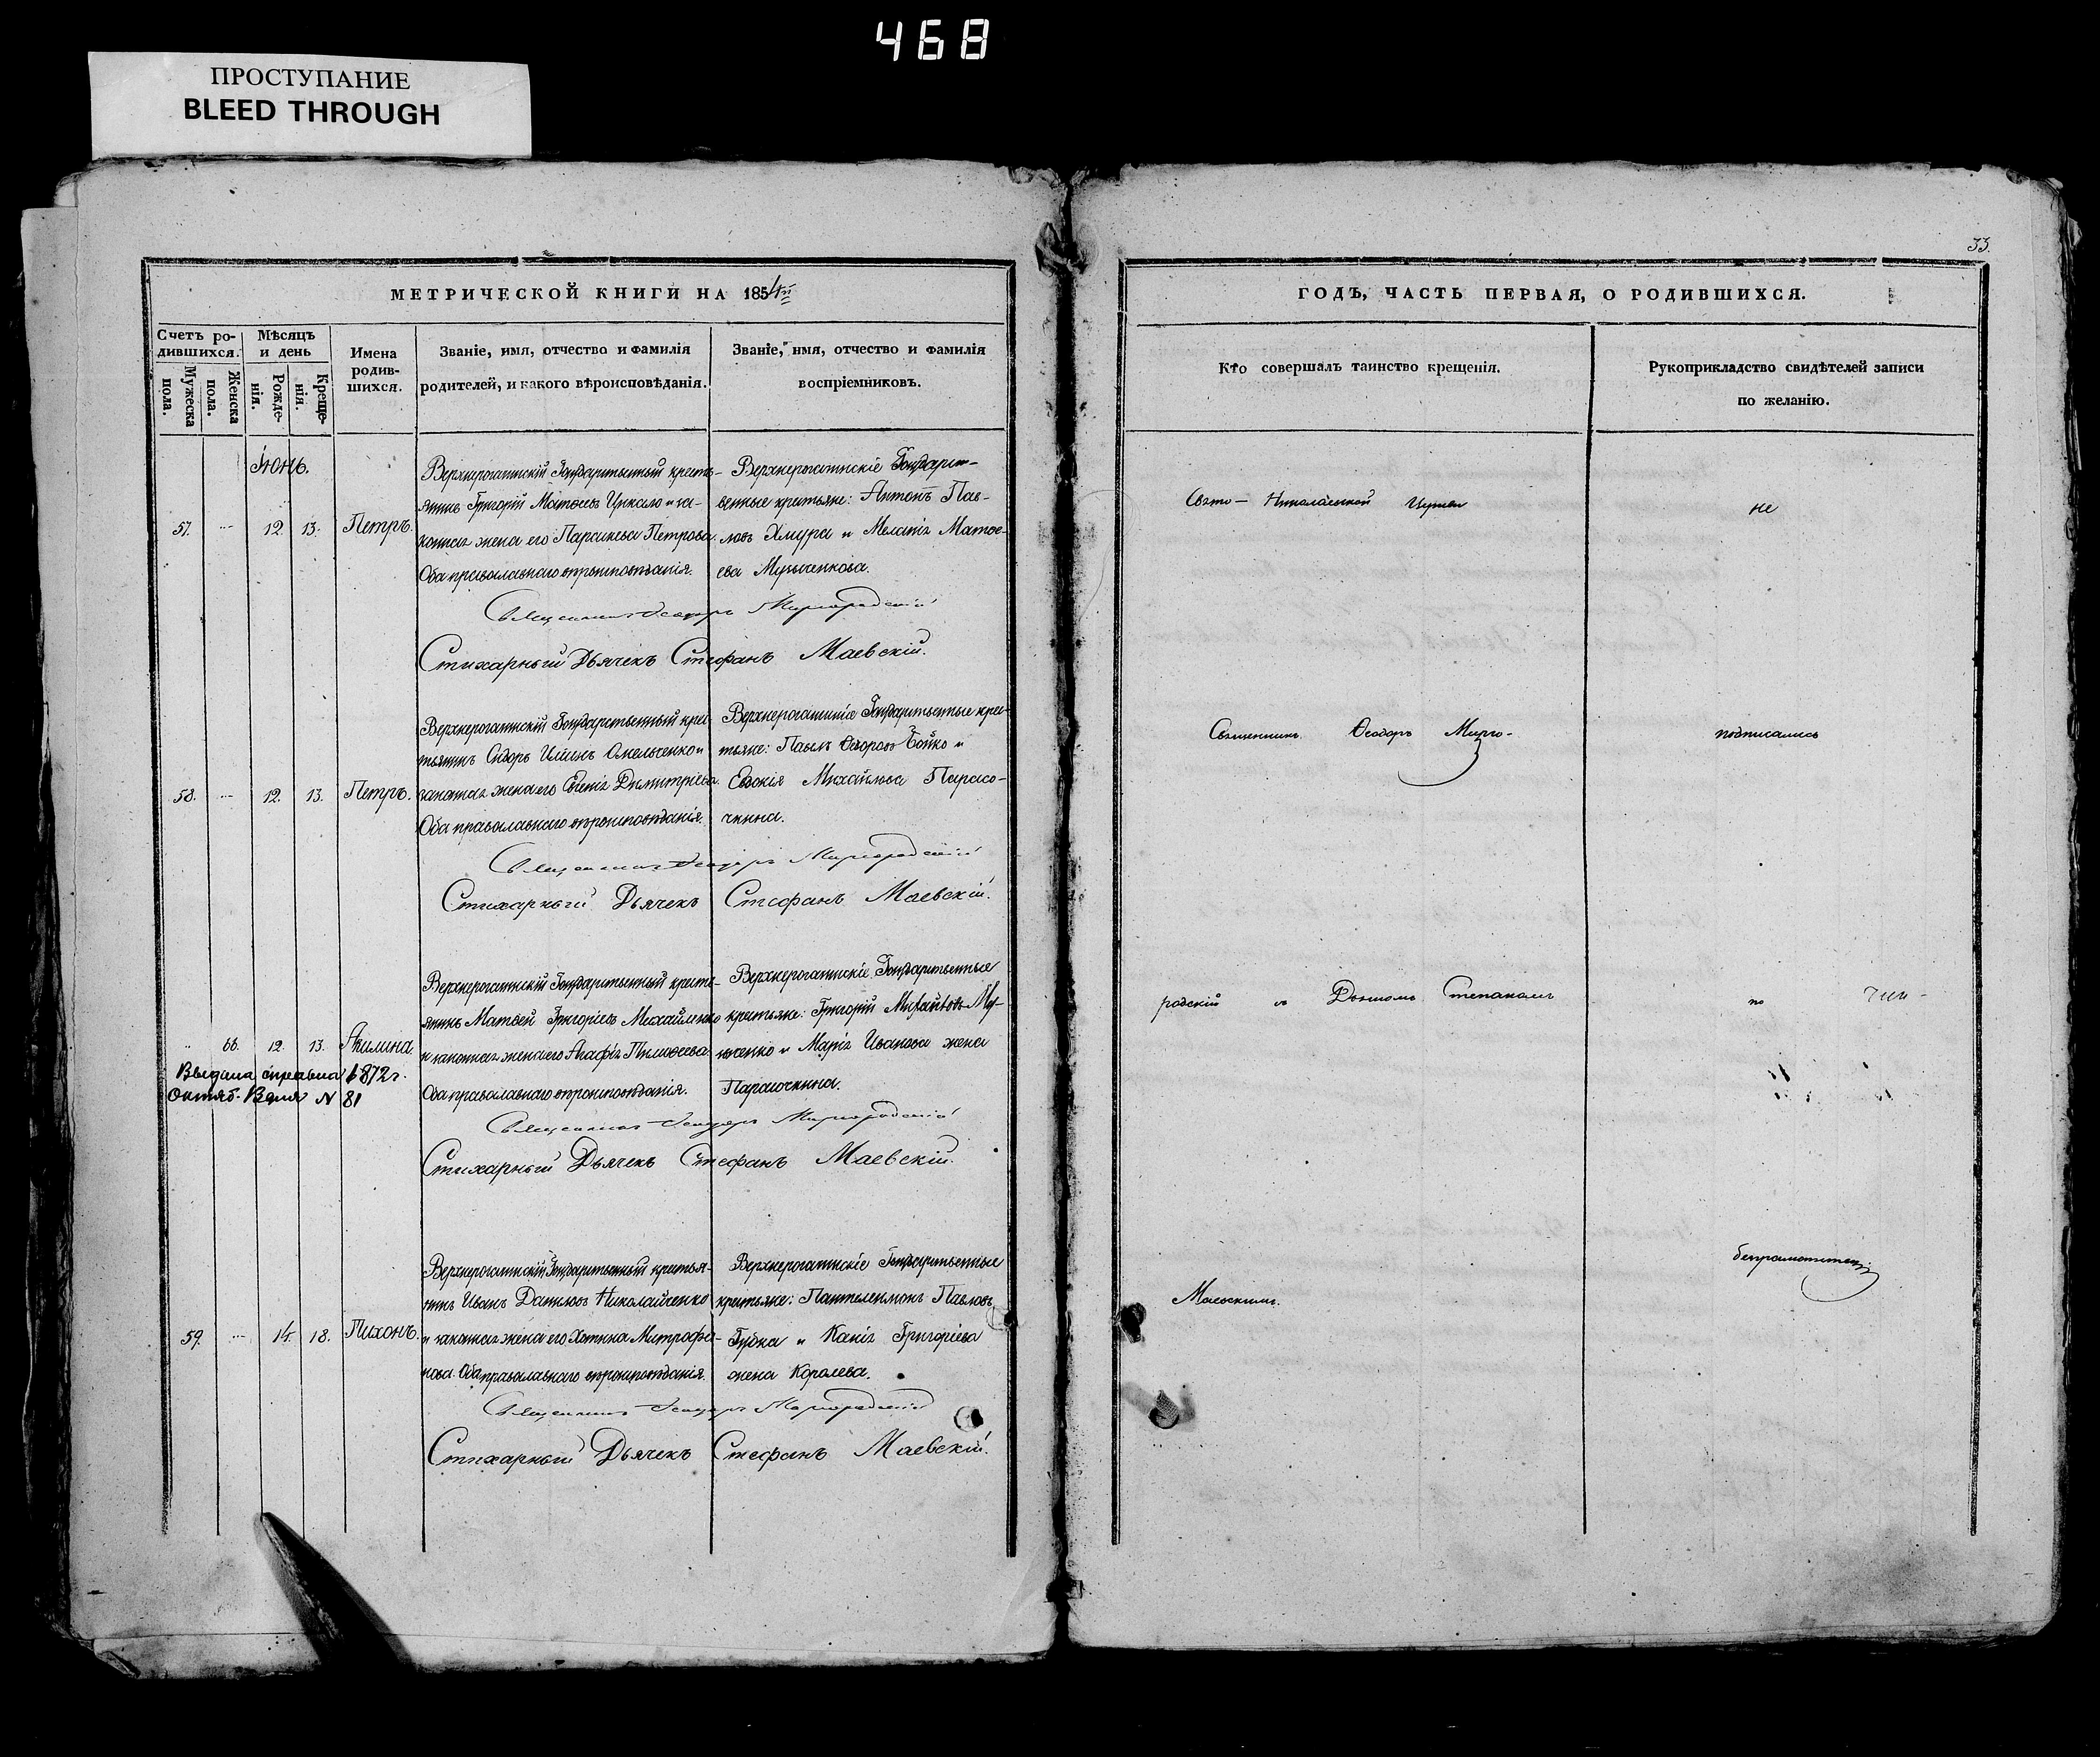 468
ПРОСТУПАНИЕ
BLEED THROUGH
33
МЕТРИЧЕСКОЙ КНИГИ НА 1854й
Счетъ родившихся.
Мужеска пола.
Женска пола.
Мѣсяцъ и день
Рожденія.
Крещенія.
Имена
родив-
шихся.
Званіе, имя, отчество и фамилія
родителей, и какого вѣроисповѣданія.
Званіе, имя, отчество и фамилія
воспріемниковъ.
Іюнь.
57. 12. 13. Петръ.
Верхнерогачикскій Государственный кресть-
янинъ Григорій Матѳеевъ и за-
конная жена его Параскева Петрова.
Оба православнаго вѣроисповѣданія.
Верхнерогачикскіе Государст-
венные крестьяне: Антонъ Пав-
ловъ Хмура и Меланія Матѳе-
ева Музыченкова.
Священникъ Ѳеодоръ Миргородскій
Стихарный Дьячекъ Стефанъ Маевскій.
58. 12. 13. Петръ.
Верхнерогачикскій Государственный крес-
тьянинъ Сидоръ Омельченко и
законная жена его Димитріева.
Оба православнаго вѣроисповѣданія.
Верхнерогачикскіе Государственные крес-
тьяне: Павелъ Бойко и
Евдокія Михайлова Парасо-
чкина.
Священникъ Ѳеодоръ Миргородскій
Стихарный Дьячекъ Стефанъ Маевскій.
66. 12. 13. Акилина.
Выдана справка 1872 г.
Октяб. 13 дня № 81
Верхнерогачикскій Государственный кресть-
янинъ Матвей Григоріевъ Михайленко
и законная жена его Агафія Тимоѳеева.
Оба православнаго вѣроисповѣданія.
Верхнерогачикскіе Государственные
крестьяне: Григорій Михайловъ
и Марія Иванова жена
Парасочкина.
Священникъ Ѳеодоръ Миргородскій
Стихарный Дьячекъ Стефанъ Маевскій.
59. 14. 18. Тихонъ.
Верхнерогачикскій Государственный крестья-
нинъ Иванъ Даниловъ Николайченко
и законная жена его Хотина Митрофа-
нова. Оба православнаго вѣроисповѣданія.
Верхнерогачикскіе Государственные
крестьяне: Пантелеимонъ Павловъ
Губка и Ксенія Григоріева
жена Королева.
Священникъ Ѳеодоръ Миргородскій
Стихарный Дьячекъ Стефанъ Маевскій.
ГОДЪ, ЧАСТЬ ПЕРВАЯ, О РОДИВШИХСЯ.
Кто совершалъ таинство крещенія.
Рукоприкладство свидѣтелей записи
по желанію.
Свято-Николаевской Церкви
Священникъ Ѳеодоръ Мирго-
родскій съ Дьячкомъ Степаномъ
Маевскимъ.
не
подписались
по
безграмотству.